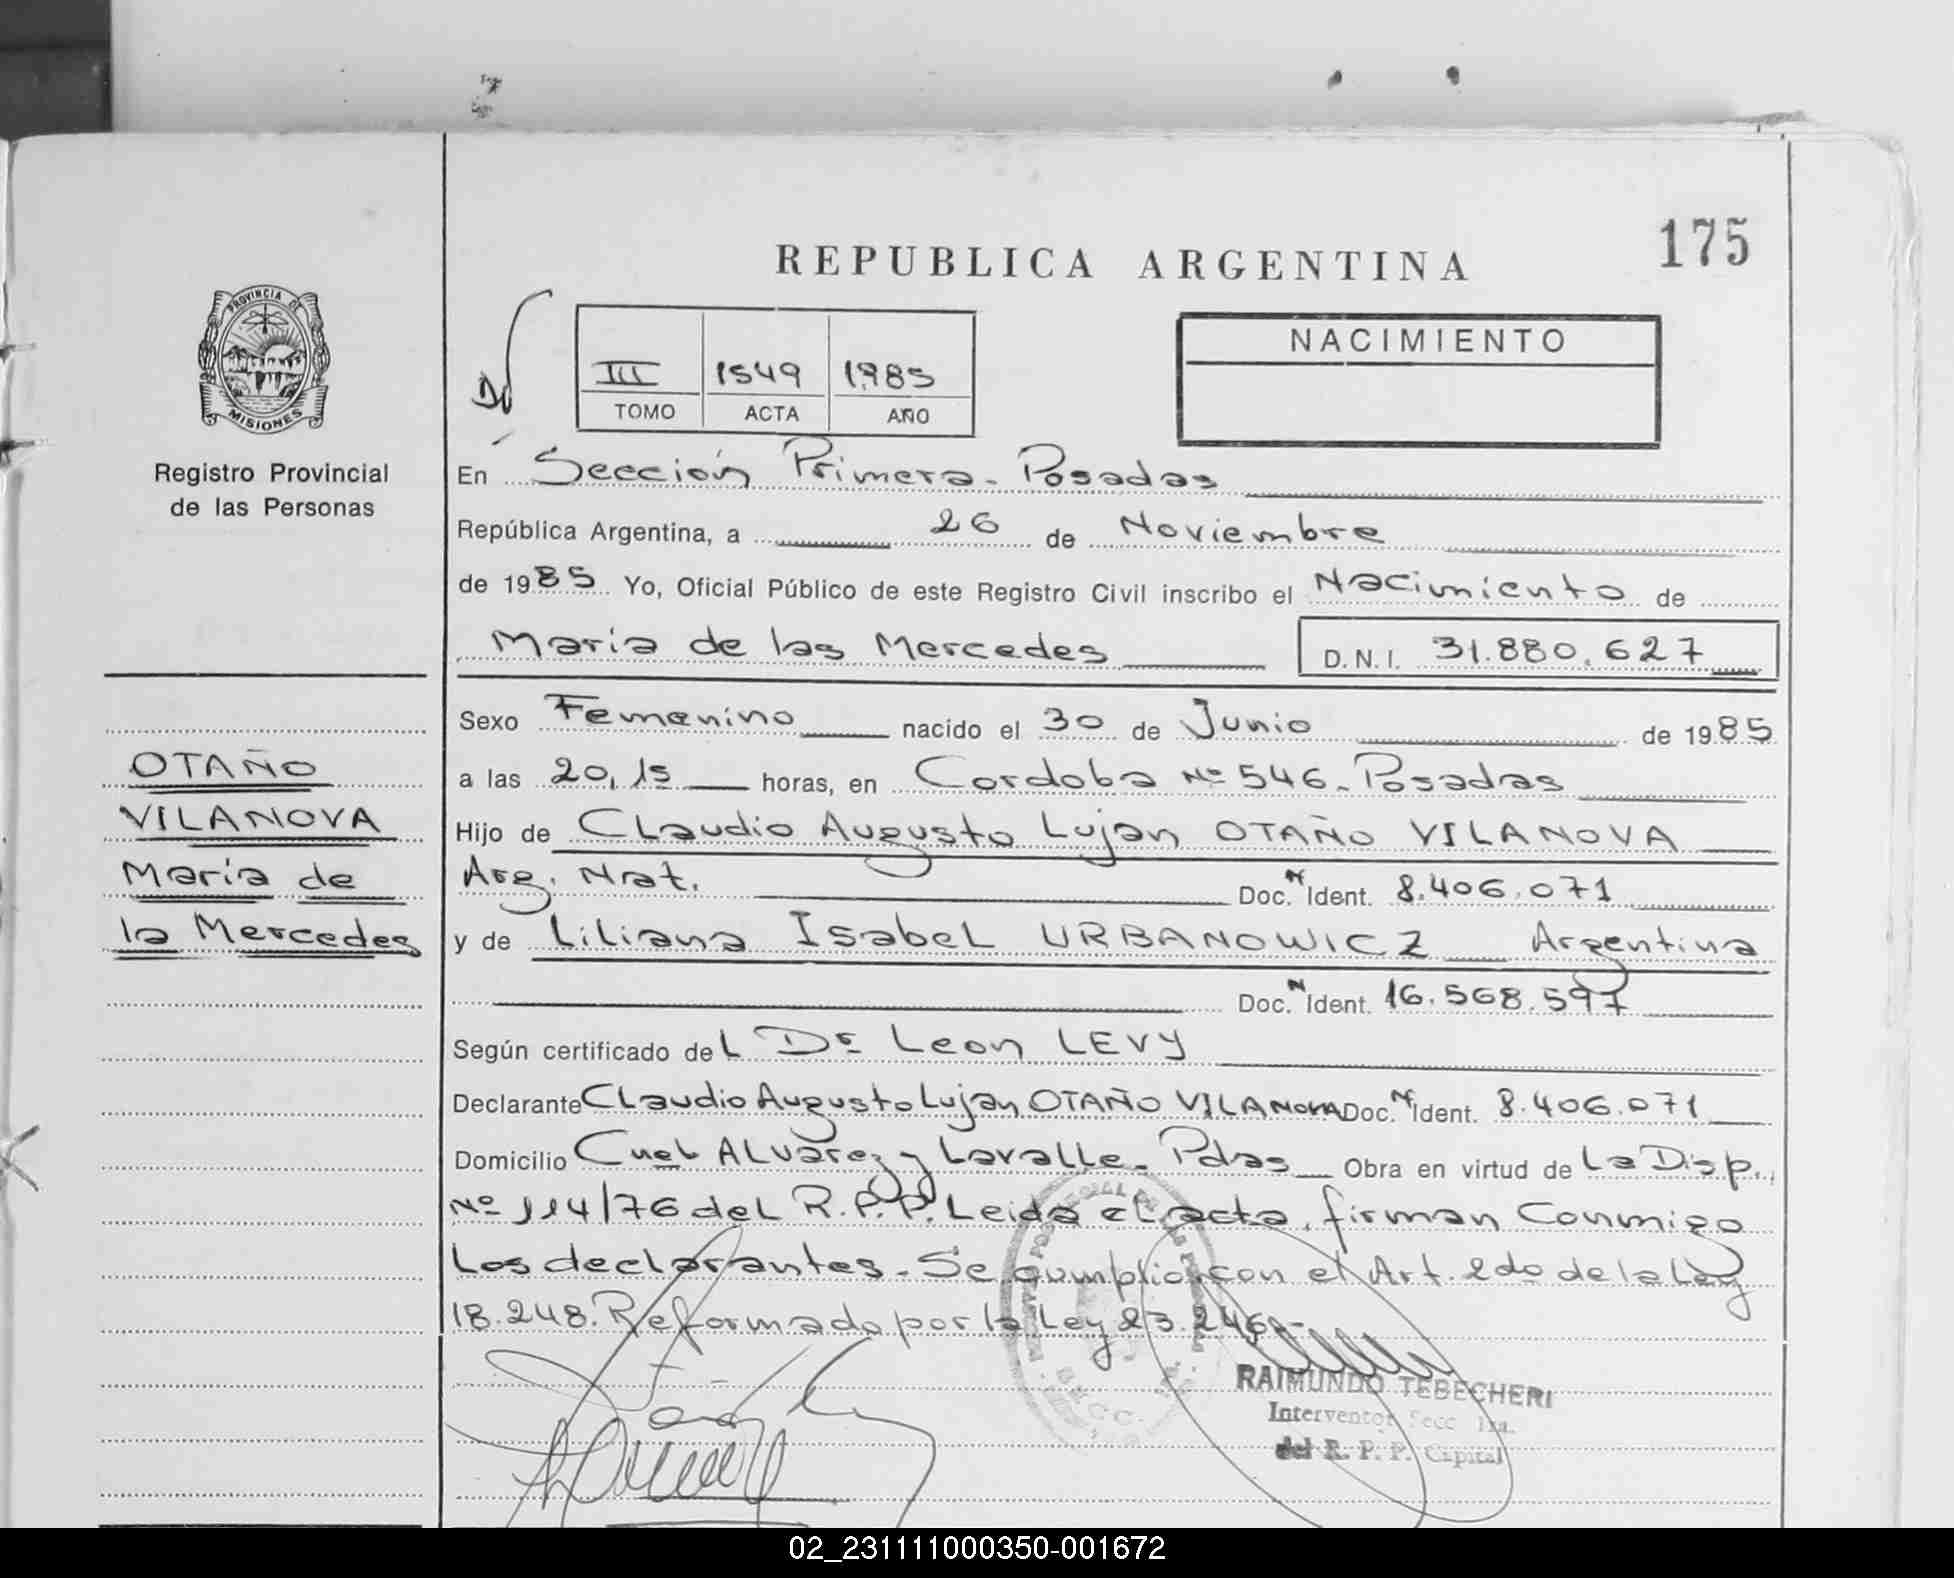 175
REPUBLICA ARGENTINA
PROVINCIA DE
MISIONES
Registro Provincial
de las Personas
III 1549 1985
TOMO ACTA AÑO
NACIMIENTO
En Sección Primera. Posadas
República Argentina, a 26 de Noviembre
de 1985 Yo, Oficial Público de este Registro Civil inscribo el Nacimiento de
Maria de las Mercedes D.N.I. 31.880.627
Sexo Femenino nacido el 30 de Junio de 1985
OTAÑO
VILANOVA
Maria de
la Mercedes
a las 20,15 horas, en Cordoba Nº 546. Posadas
Hijo de Claudio Augusto Lujan OTAÑO VILANOVA
Arg. Nat. Doc. N Ident. 8.406.071
y de Liliana Isabel URBANOWICZ Argentina
Doc. N Ident. 16.568.597
Según certificado del Dr Leon LEVY
Declarante Claudio Augusto Lujan OTAÑO VILANOVA Doc. N Ident. 8.406.071
Domicilio Cnel Alvarez y Lavalle. Pdas Obra en virtud de La Disp.
Nº 114/76 del R.P.P. Leida el acta, firman Conmigo
Los declarantes. Se cumplio con el Art. 2do de la Ley
18.248. Reformado por la Ley 23.246.-
RAIMUNDO TEBECHERI
Interventor Secc. 1ra.
del R. P. P. Capital
02_231111000350-001672